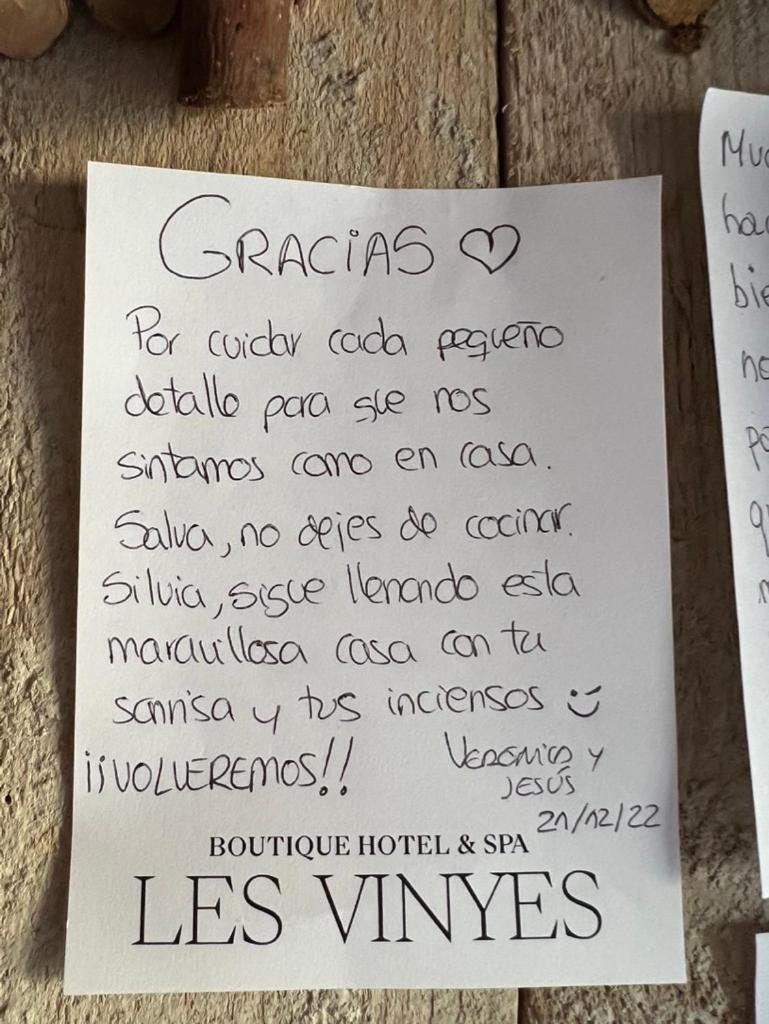 GRACIAS ♡
Por cuidar cada pequeño
detalle para que nos
sintamos como en casa.
Salva, no dejes de cocinar.
Silvia, sigue llenando esta
maravillosa casa con tu
sonrisa y tus inciensos :)
¡¡VOLVEREMOS!!
VERONICA Y
JESÚS
21/12/22
BOUTIQUE HOTEL & SPA
LES VINYES
Muc
hac
bie
no
po
qu